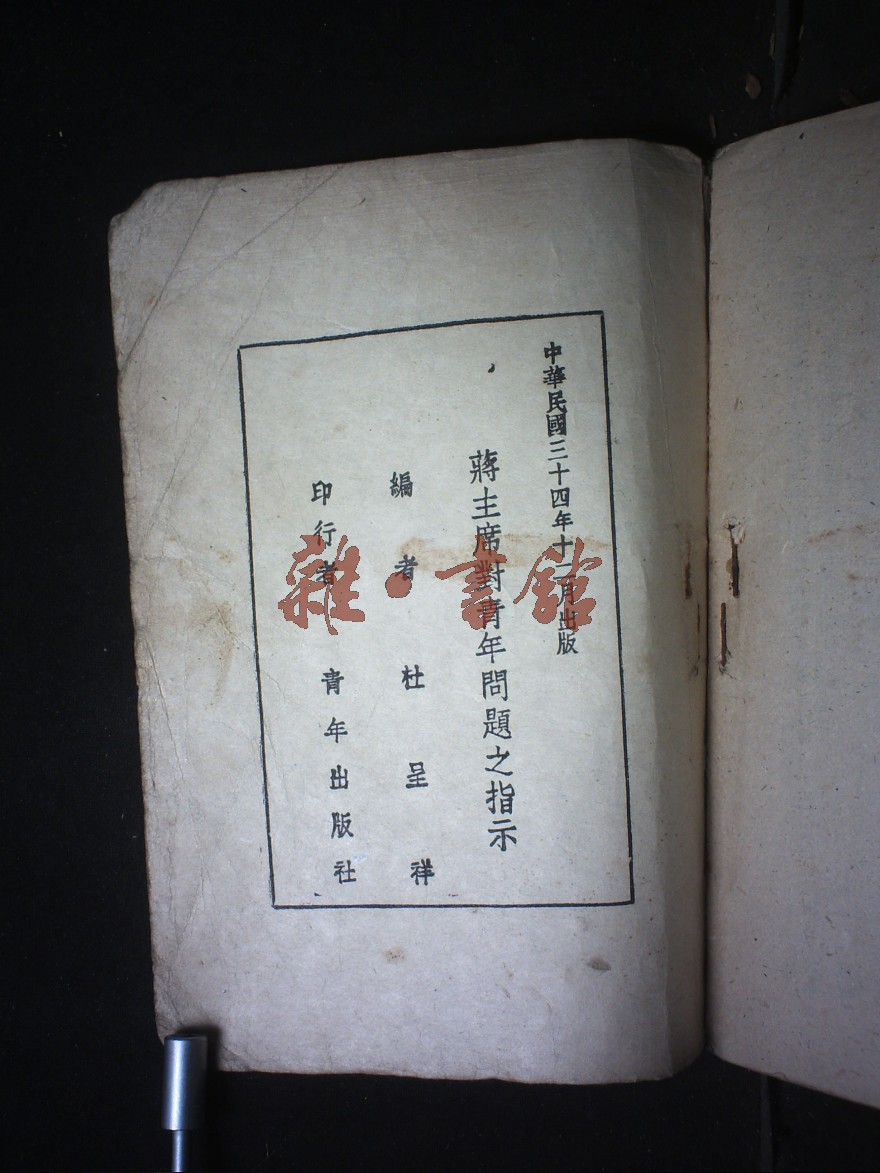 中華民國三十四年十二月出版
蔣主席對青年問題之指示
編者 杜呈祥
印行者 青年出版社
雜·書館